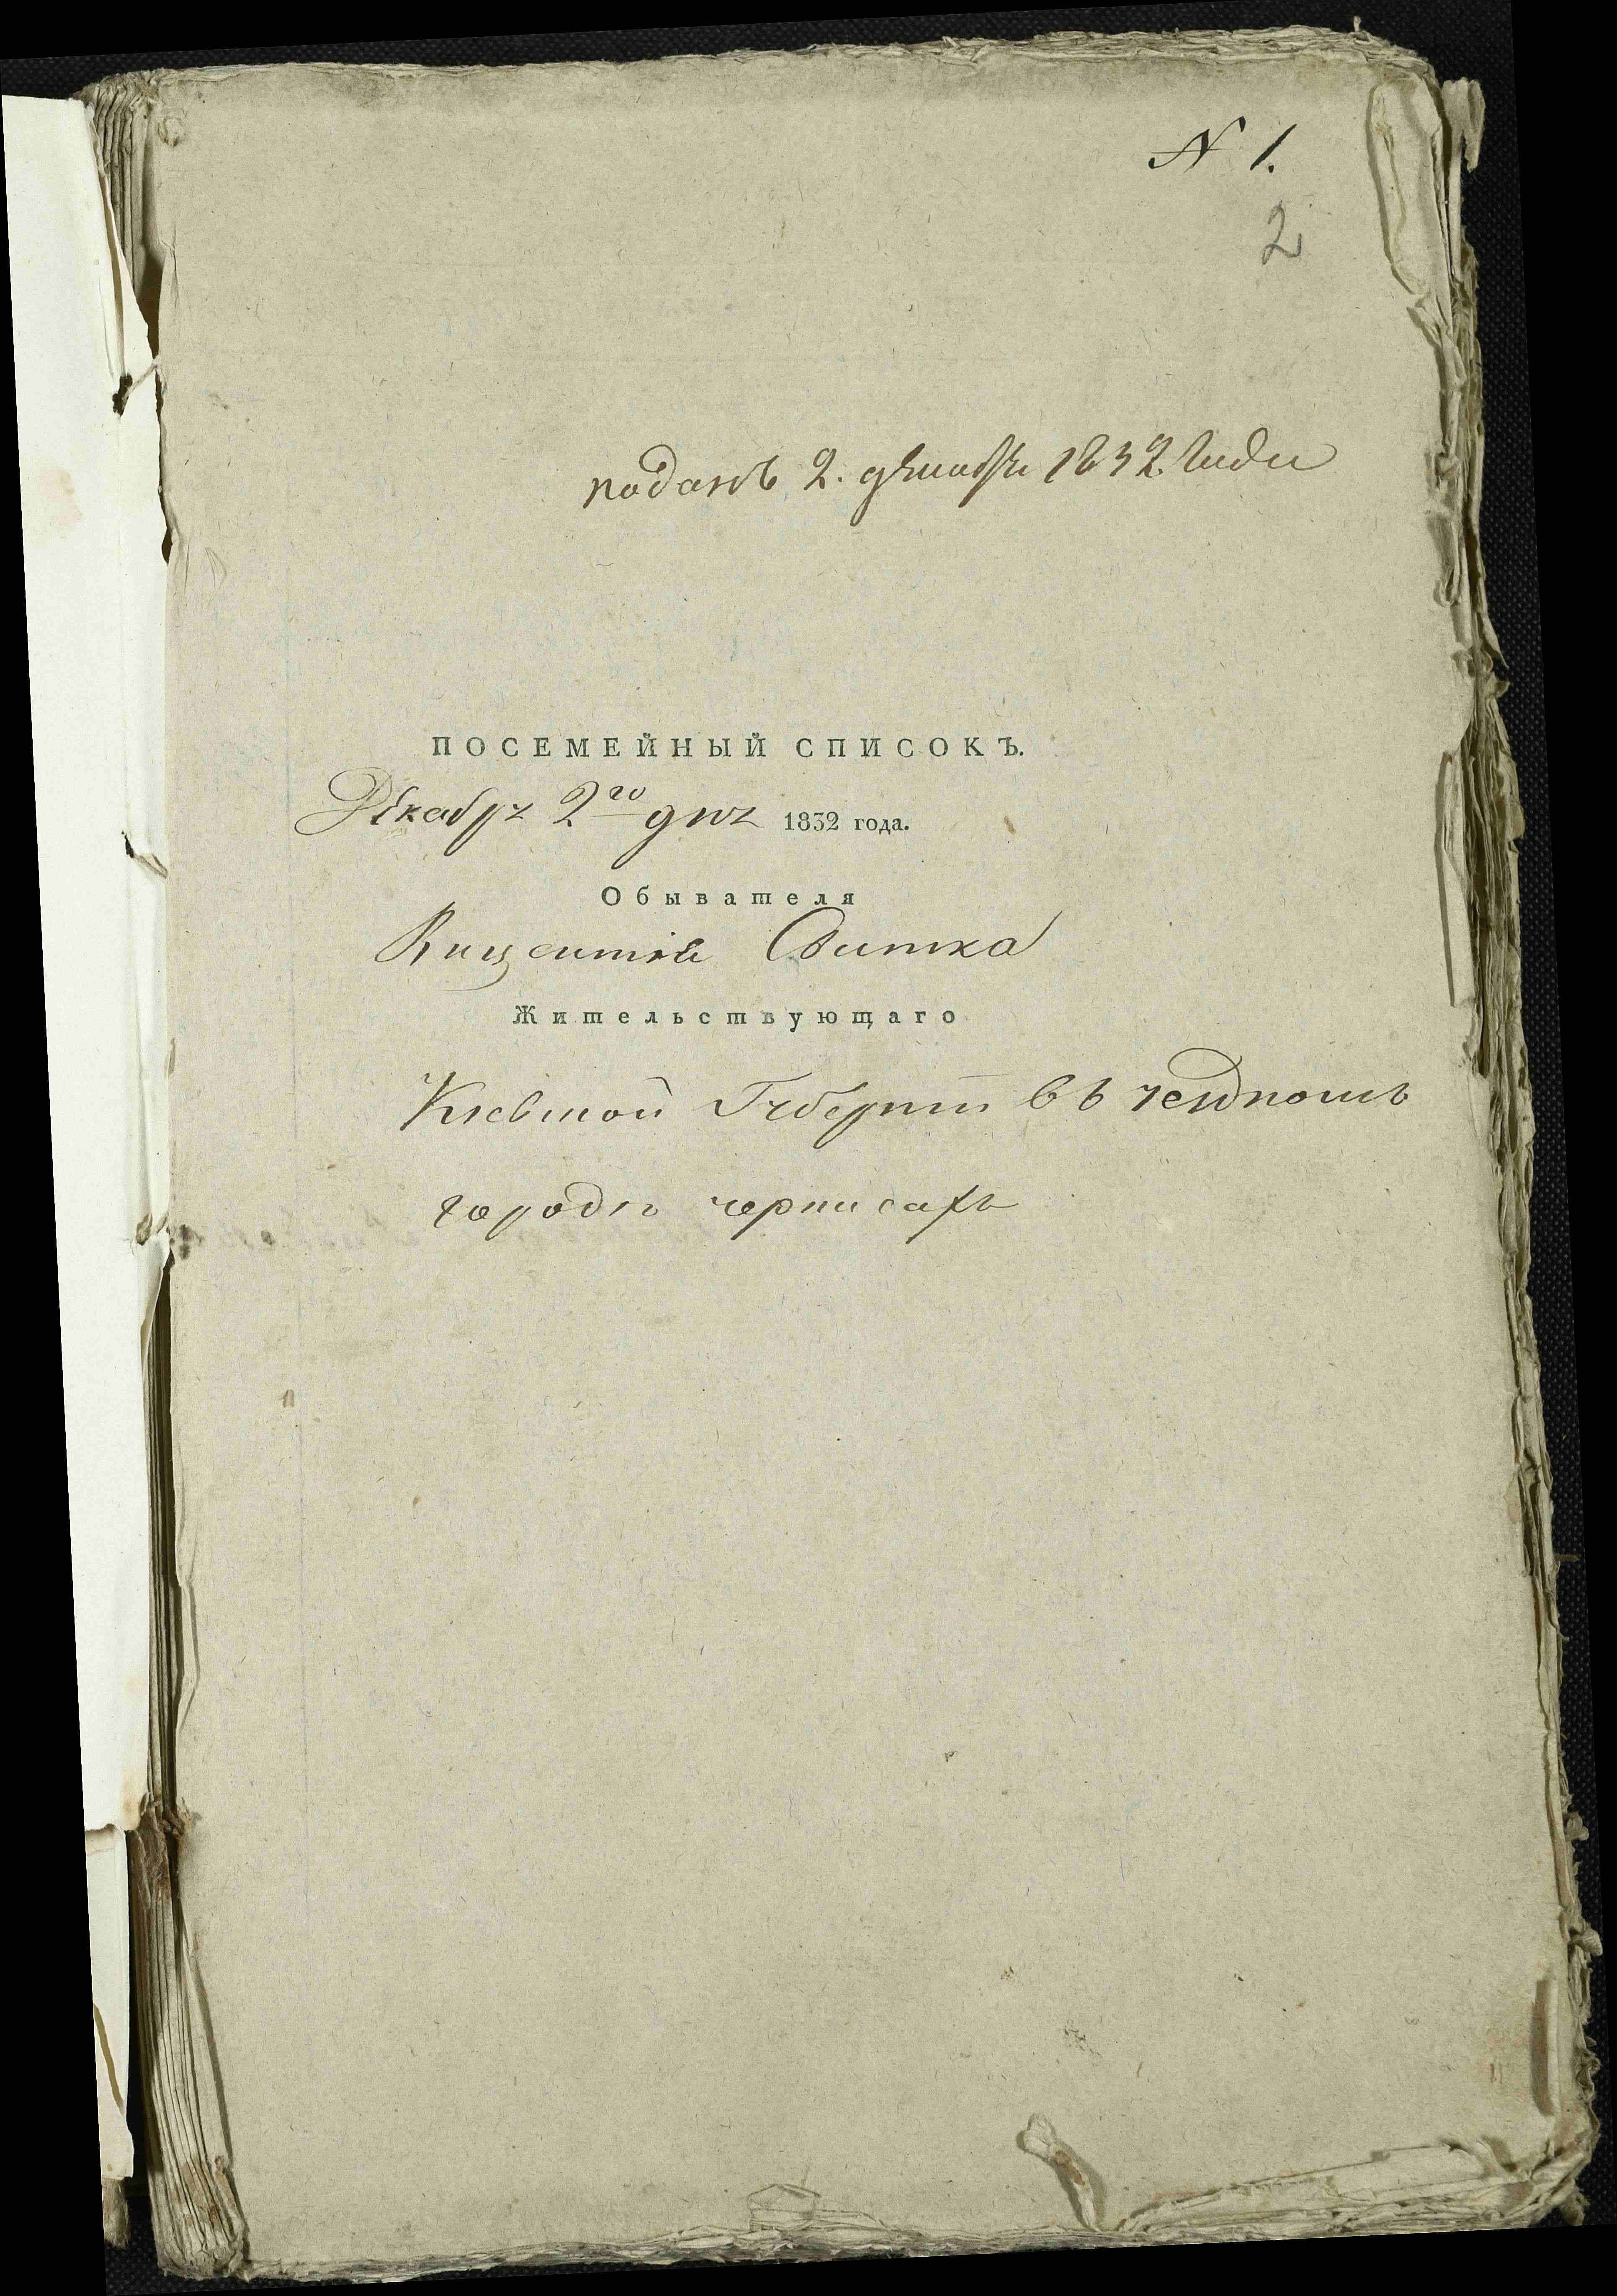 N 1.
2
поданъ 2. декабря 1832. года
ПОСЕМЕЙНЫЙ СПИСОКЪ.
Декабря 2го дня 1832 года.
Обывателя
Вицентія Свитка
Жительствующаго
Кіевской Губерніи въ уездномъ
городе черкасахъ